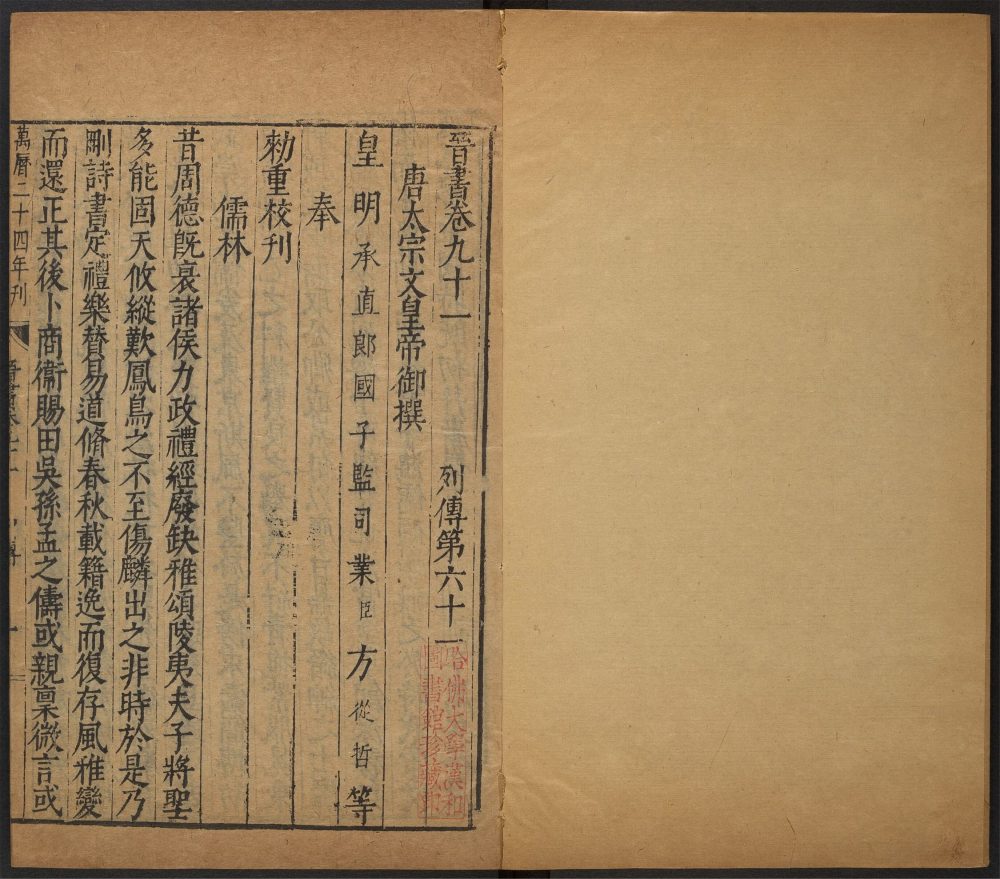 晉書卷九十一 列傳第六十一
唐太宗文皇帝御撰
皇明承直郎國子監司業臣方從哲等
奉
勑重校刊
儒林
昔周德旣衰諸侯力政禮經廢缺雅頌陵夷夫子將聖
多能固天攸縱歎鳳鳥之不至傷麟出之非時於是乃
刪詩書定禮樂賛易道脩春秋載籍逸而復存風雅變
而還正其後卜商衞賜田吳孫孟之儔或親稟微言或
萬曆二十四年刊
哈佛大學漢和
圖書館珍藏印